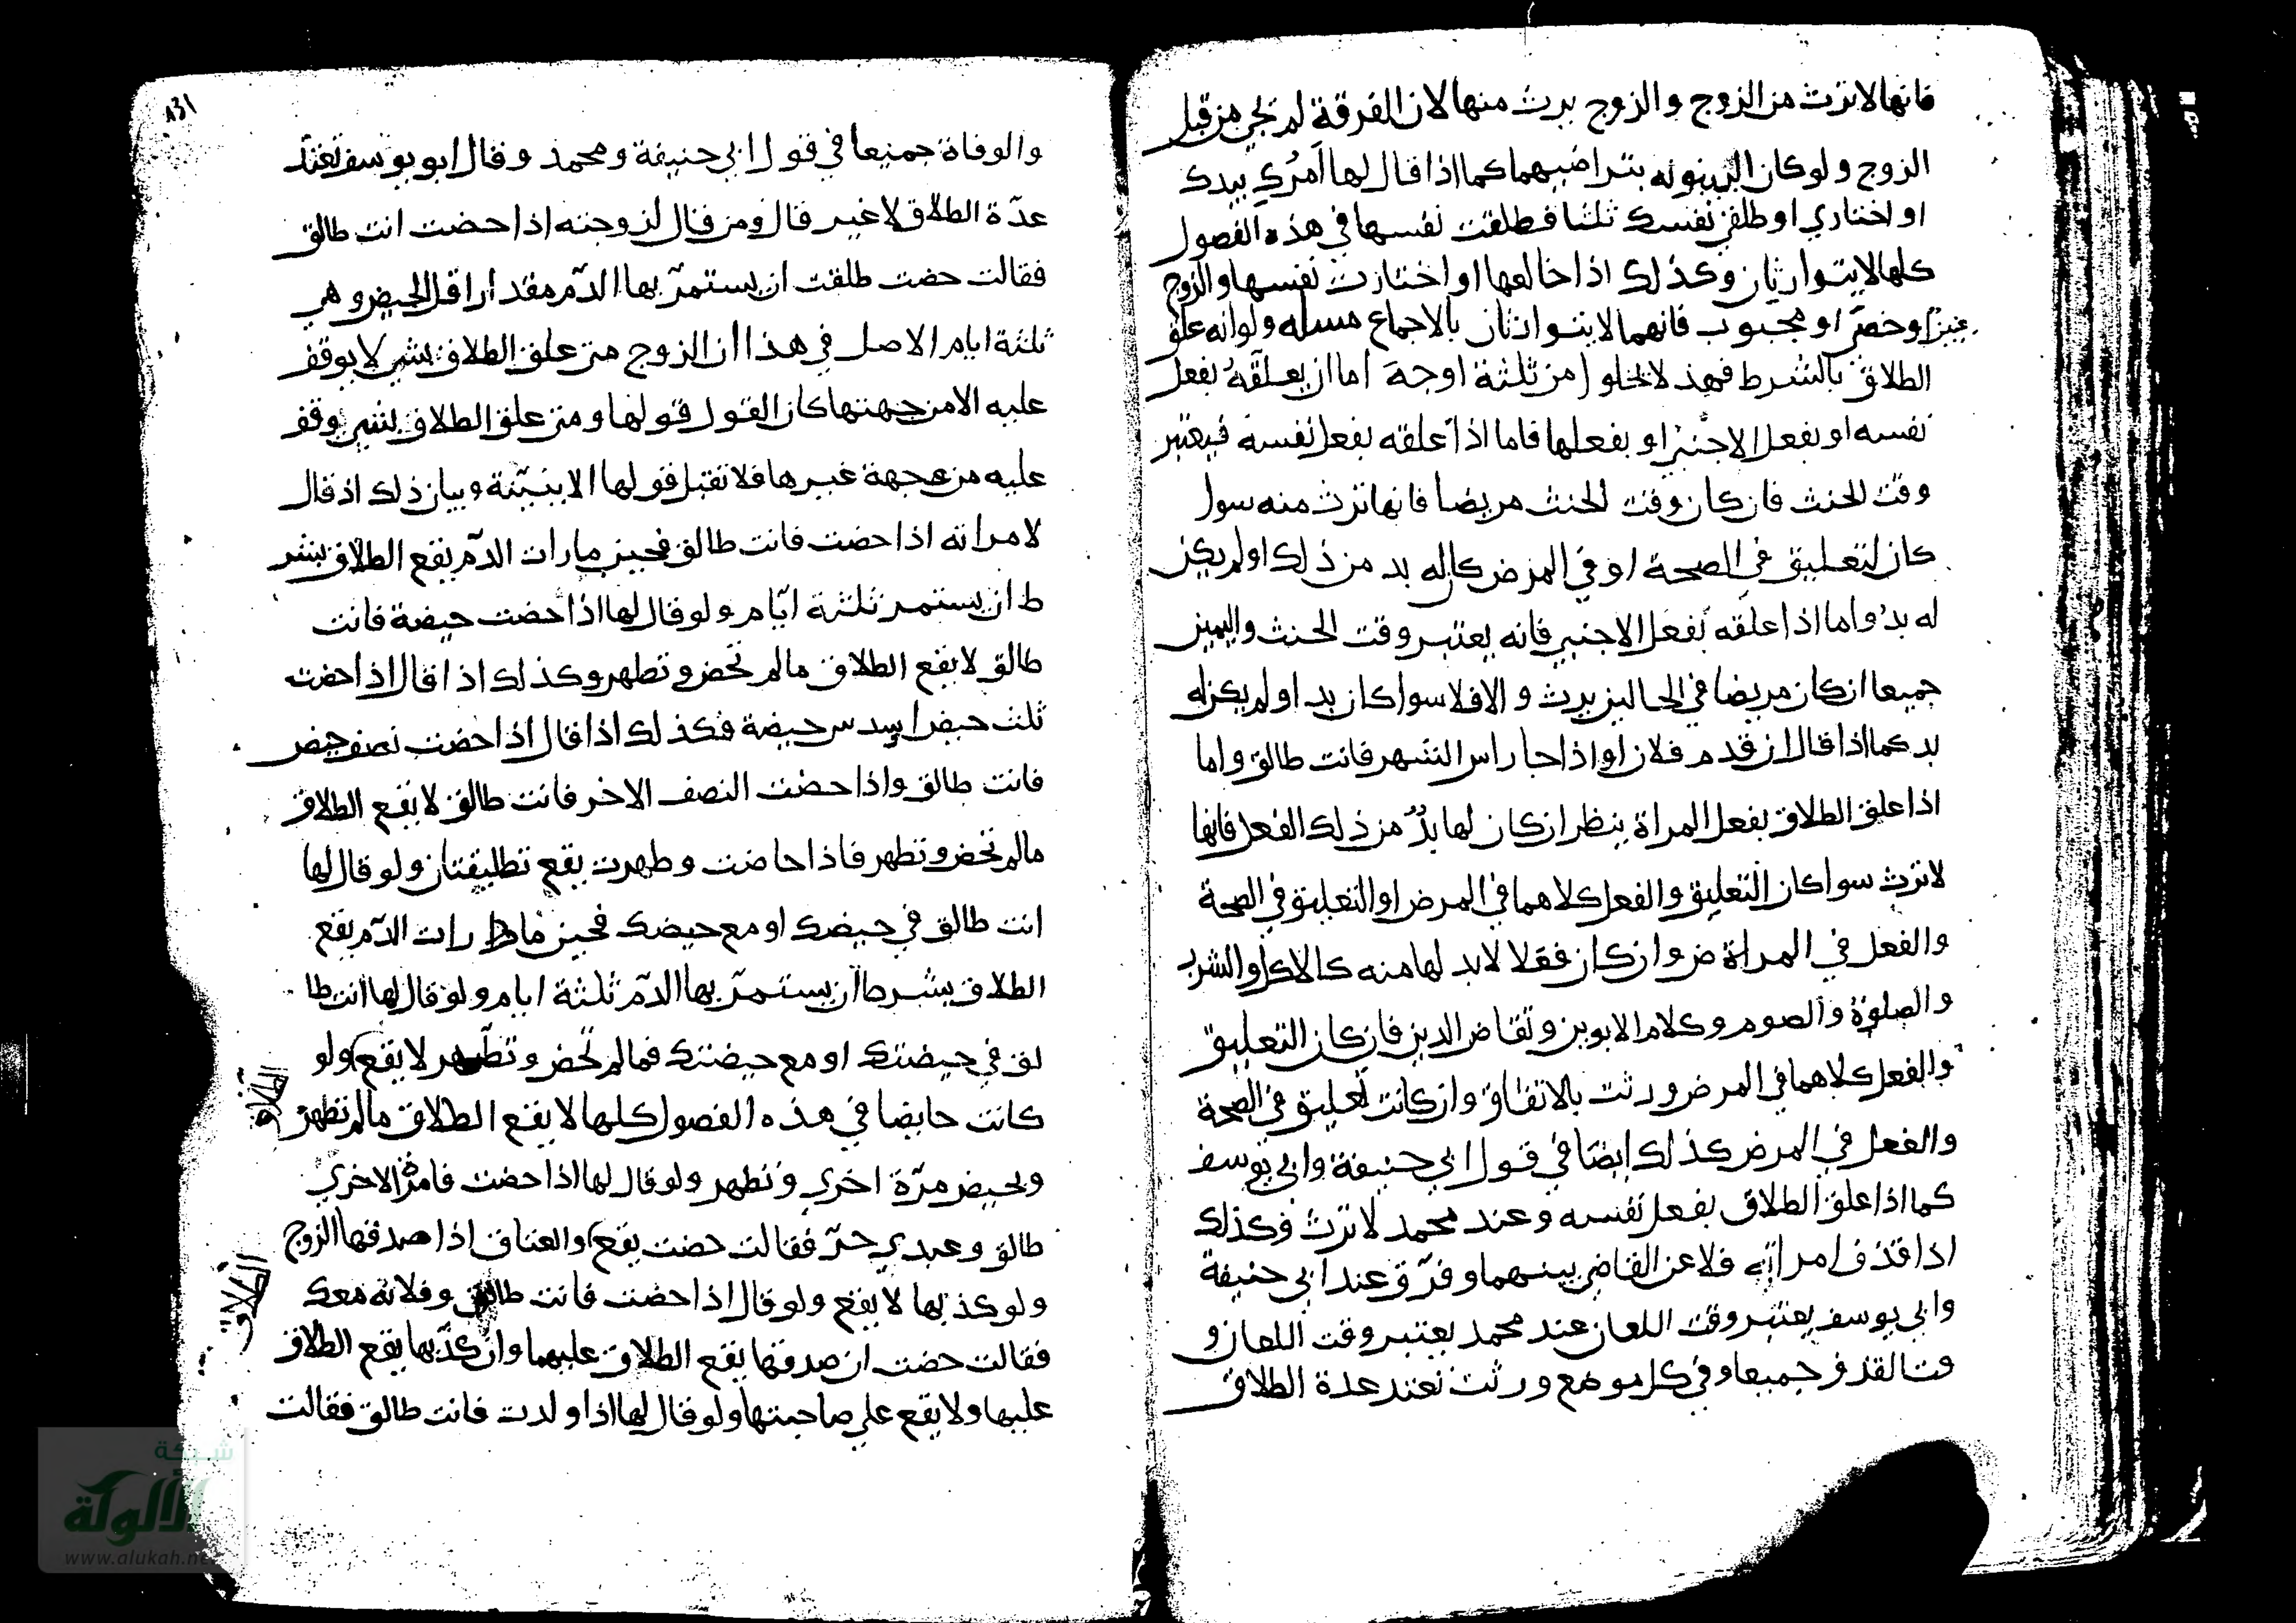 فانها لا ترث من الزوج والزوج يرث منها لان الفرقة لم تجئ من قبل
الزوج ولو كان البينونه بتراضيهما كما اذا قال لها امرُكِ بيدك
او اختاري او طلقي نفسك ثلثا فطلقت نفسها في هذه الفصول
كلها لا يتوارثان وكذلك اذا خالعها او اختارت نفسها والزوج
عنين او خصّي او مجبوب فانهما لا يتوارثان بالاجماع مسله ولو انه علق
الطلاق بالشرط فهذ لا يخلو امن ثلثة اوجه اما ان يعلقه بفعل
نفسه او بفعل الاجنبي او بفعلها فاما اذا علقه بفعل نفسه فيعتبر
وقت الحنث فان كان وقت الحنث مريضا فانها ترث منه سوا
كان لتعليق في الصحة او في المرض كان له بد من ذلك او لم يكن
له بدُ واما اذا علقه بفعل الاجنبي فانه يعتبر وقت الحنث واليمين
جميعا ان كان مريضا في الحالين يرث والا فلا سوا كان بد او لم يكن له
بد كما اذا قال ان قدم فلان او اذا جا راس الشهر فانت طالق واما
اذا علق الطلاق بفعل المراة ينظر ان كان لها بدُّ من ذلك الفعل فانها
لا ترث سوا كان التعليق والفعل كلاهما في المرض او التعليق في الصحة
والفعل في المراة ض وان كان فعلا لا بد لها منه كالاكل والشرب
والصلوة والصوم وكلام الابوين وتقاض الدين فان كان التعليق
والفعل كلاهما في المرض ورثت بالاتفاق وان كانت تعليق في الصحة
والفعل في المرض كذلك ايضا في قول ابي حنيفة وابي يوسف
كما اذا علق الطلاق بفعل نفسه وعند محمد لا ترث فكذلك
اذا قذف امراته فلاعن القاضي بينهما وفرّق عند ابي حنيفة
وابي يوسف يعتبر وقت اللعان عند محمد يعتبر وقت اللعان و
قت القذف جميعا وفي كل موضع ورثت تعتد عدة الطلاق
١٣١
والوفاة جميعا في قول ابي حنيفة ومحمد وقال ابو يوسف تعتد
عدّة الطلاق لا غير قال ومن قال لزوجته اذا حضت انت طالق
فقالت حضت طلقت ان يستمرّ بها الدّم مقدار اقل الحيض وهي
ثلثة ايام الاصل في هذا ان الزوج متى علق الطلاق بشي لا يوقف
عليه الا من جهتها كان القول قولها ومتى علق الطلاق بشي يوقف
عليه من جهة غيرها فلا تقبل قولها الا ببيّنة وبيان ذلك اذ قال
لامراته اذا حضت فانت طالق فحين ما رات الدّم يقع الطلاق بشر
ط ان يستمر ثلثة ايّام ولو قال لها اذا حضت حيضة فانت
طالق لا يقع الطلاق ما لم تحض وتطهر وكذلك اذا قال اذا حضت
ثلث حيض اسدس حيضة فكذلك اذا قال اذا حضت نصف حيض
فانت طالق واذا حضت النصف الاخر فانت طالق لا يقع الطلاق
ما لم تحض وتطهر فاذا حاضت وطهرت يقع تطليقتان ولو قال لها
انت طالق في حيضك او مع حيضك فحين ما رات الدّم يقع
الطلاق بشرط ان يستمرّ بها الدّم ثلثة ايام ولو قال لها انت طا
لق في حيضتك او مع حيضتك فما لم تحض وتطهر لا يقع ولو
الطلاق
كانت حايضا في هذه الفصول كلها لا يقع الطلاق ما لم تطهر
ويحيض مرّة اخري وتطهر ولو قال لها اذا حضت فامرتي الاخري
طالق وعبدي حرّ فقالت حضت يقع والعتاق اذا صدقها الزوج
الطلاق
ولو كذبها لا يقع ولو قال اذا حضت فانت طالق وفلانه معك
فقالت حضت ان صدقها يقع الطلاق عليهما وان كذّبها يقع الطلاق
عليها ولا يقع علي صاحبتها ولو قال لها اذا ولدت فانت طالق فقالت
شبكة
الألوكة
www.alukah.net